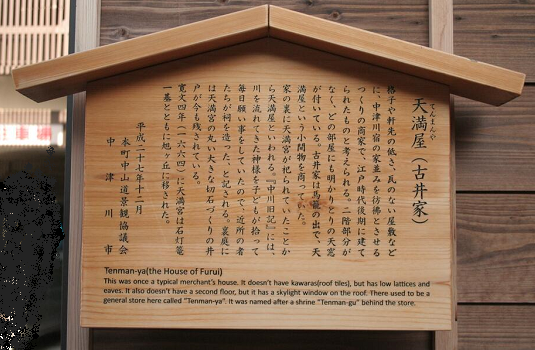 天満屋（古井家）
てんまんや
格子や軒先の低さ、瓦のない屋敷など
に、中津川宿の家並みを彷彿とさせる
つくりの商家で、江戸時代後期に建て
られたものと考えられる。二階部分が
なく、どの部屋にも明かりとりの天窓
が付いている。古井家は馬籠の出で、天
満屋という小間物を商っていた。
家の裏に天満宮が祀られていたことか
ら天満屋といわれる。『中川旧記』には、
川を流れてきた神様を子どもが拾って
毎日願い事をしていたので、近所の者
たちが祠を造った、と記される。裏庭に
は天満宮の丸い大きな切石づくりの井
戸が今も残されている。
寛文四年（一六六四）に天満宮は石灯籠
一基とともに旭ヶ丘に移された。
平成二十七年十二月
本町中山道景観協議会
中津川市
Tenman-ya(the House of Furui)
This was once a typical merchant's house. It doesn't have kawaras(roof tiles), but has low lattices and
eaves. It also doesn't have a second floor, but it has a skylight window on the roof. There used to be a
general store here called "Tenman-ya". It was named after a shrine "Tenman-gu" behind the store.